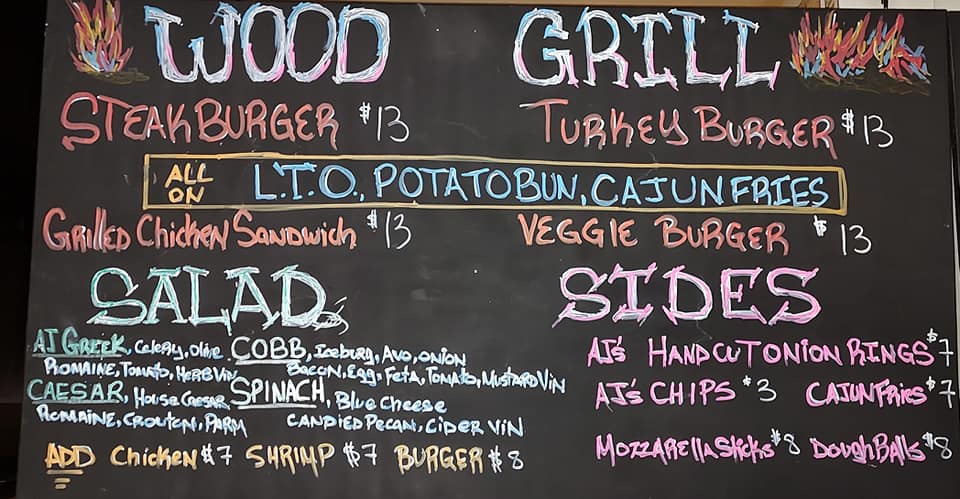 WOOD GRILL
STEAK BURGER $13
TURKEY BURGER $13
ALL ON L.T.O., POTATO BUN, CAJUN FRIES
Grilled Chicken Sandwich $13
VEGGIE BURGER $13
SALAD
AJ GREEK, Celery, Olive
ROMAINE, TOMATO, HERB VIN
COBB, Iceburg, Avo, ONION
BACON, Egg, FETA, TOMATO, MUSTARD VIN
CAESAR, House Caesar
ROMAINE, CROUTEN, PARM
SPINACH, Blue Cheese
CANDIED PECAN, CIDER VIN
ADD Chicken $7 SHRIMP $7 BURGER $8
SIDES
AJ's HANDCUT ONION RINGS $7
AJ's CHIPS $3 CAJUN Fries $7
MOZZARELLA Sticks $8 DOUGH BAlls $8